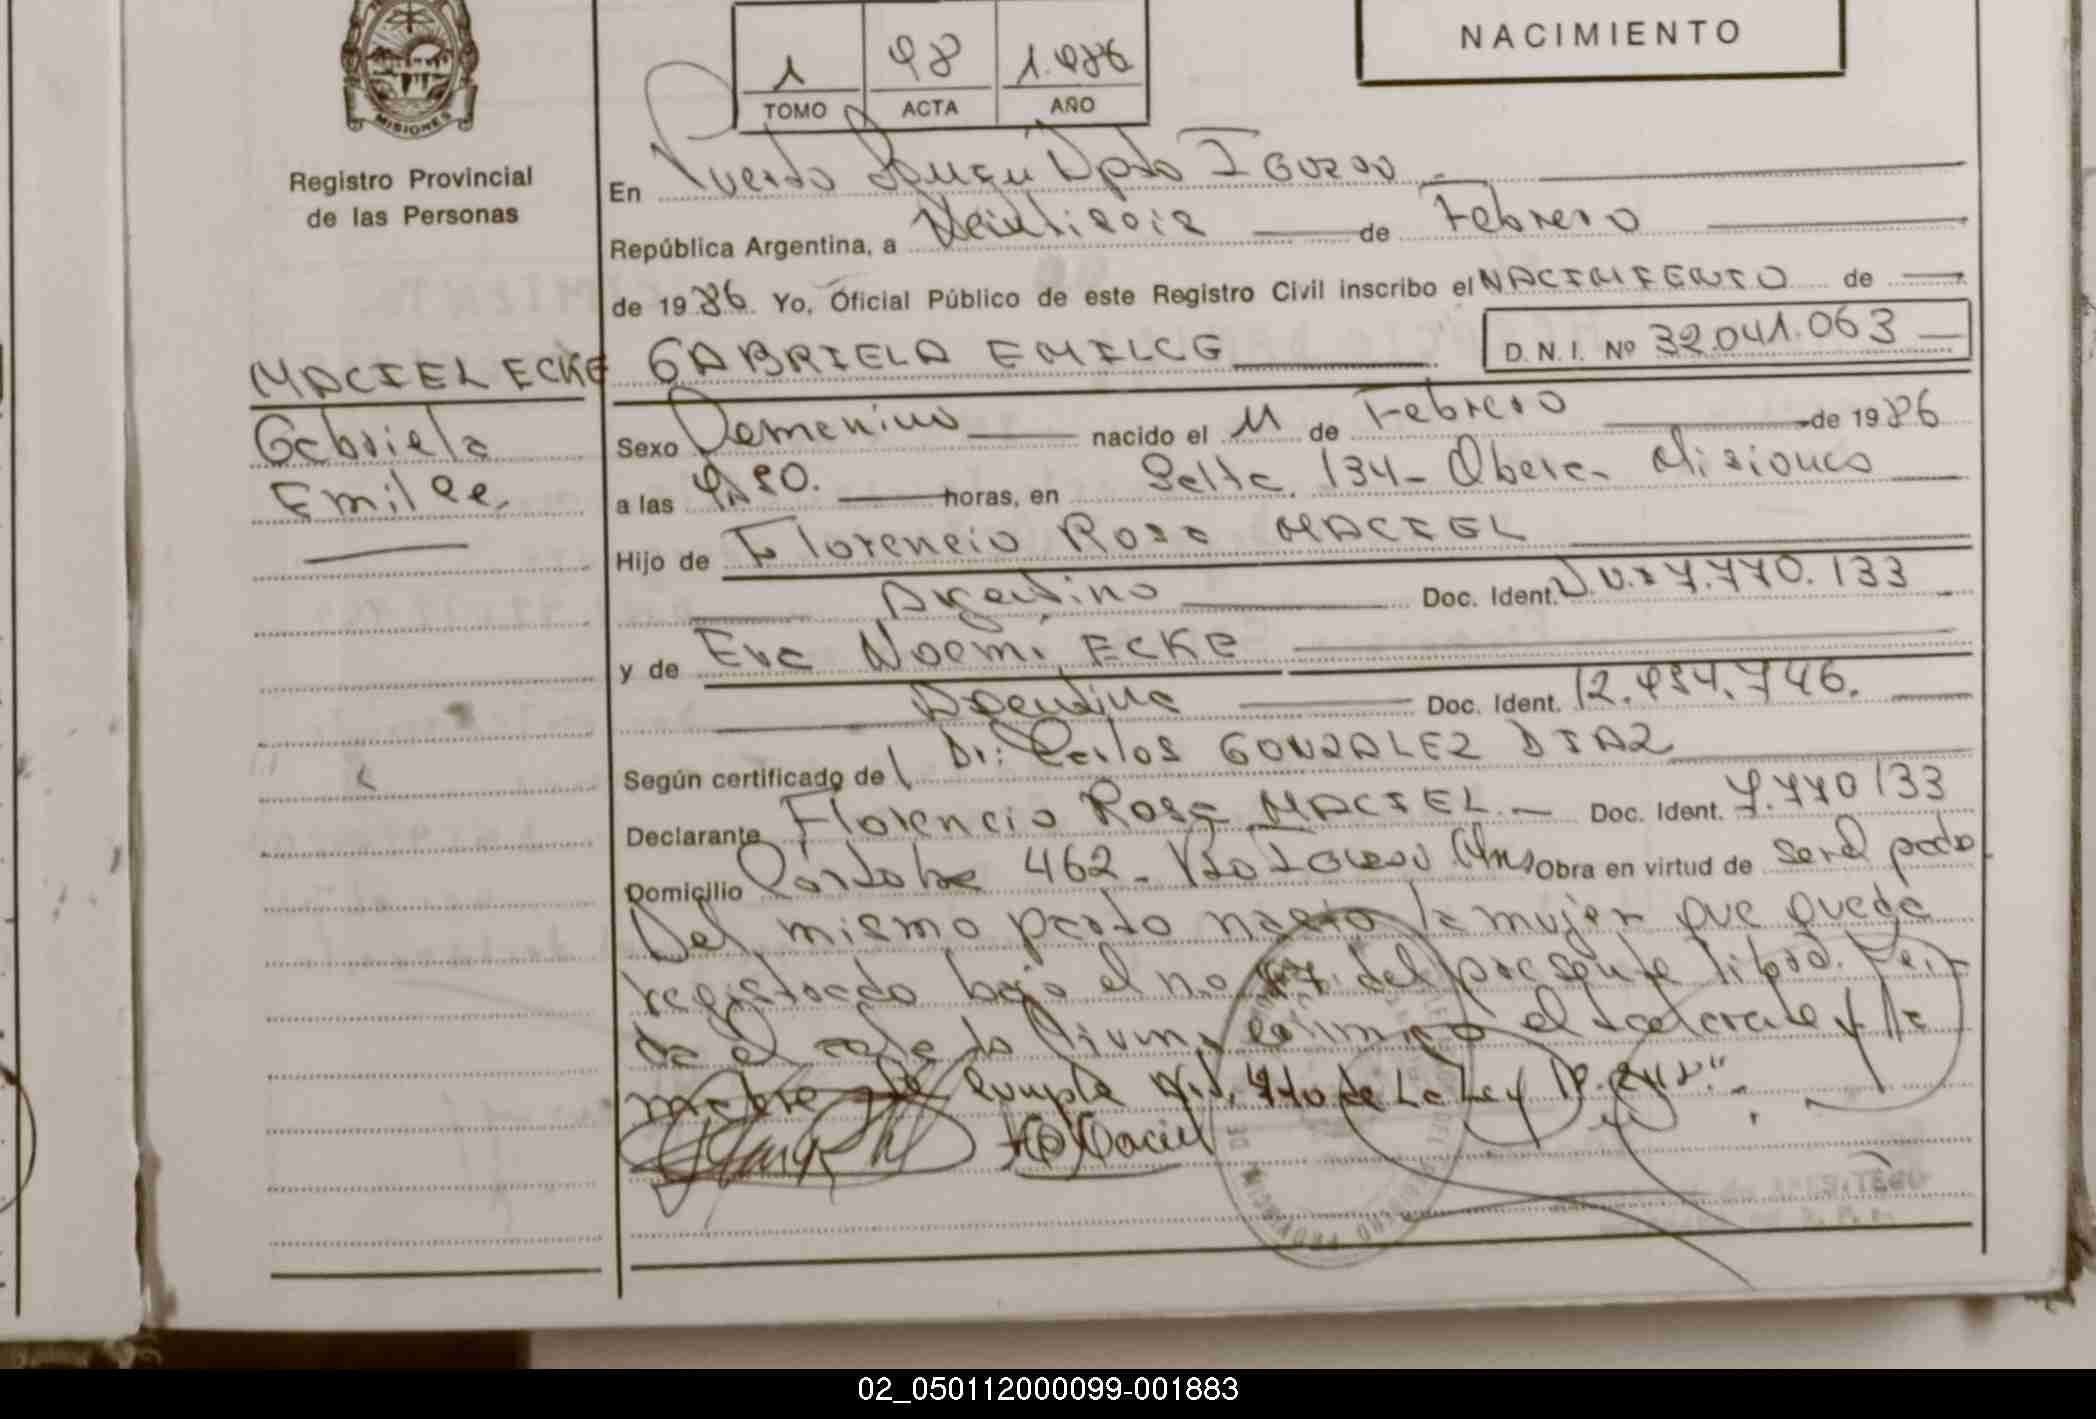 NACIMIENTO
1 98 1.986
TOMO ACTA AÑO
MISIONES
Registro Provincial
de las Personas
En Puerto Iguazú Dpto IGUAZU
República Argentina, a Veintiseis de Febrero
de 1986. Yo, Oficial Público de este Registro Civil inscribo el NACIMIENTO de
MACIEL ECKE GABRIELA EMILCE D.N.I. Nº 32.041.063
Gabriela
Emilce
Sexo Femenino nacido el 11 de Febrero de 1986
a las horas, en Salta 134 - Obera - Misiones
Hijo de Florencio Rosa MACIEL
Argentino Doc. Ident. 7.770.133
y de Eva Noemi ECKE
Argentina Doc. Ident. 12.954.746.
Según certificado de Dr: Carlos GONZALEZ DIAZ
Declarante Florencio Rosa MACIEL - Doc. Ident. 7.770133
Domicilio Córdoba 462 - Pto Iguazú Mnes Obra en virtud de ser el padre
Del mismo parto nació la mujer que queda
registrada bajo el no 97 del presente libro.
madre cumple Art. de La Ley
Maciel
02_050112000099-001883